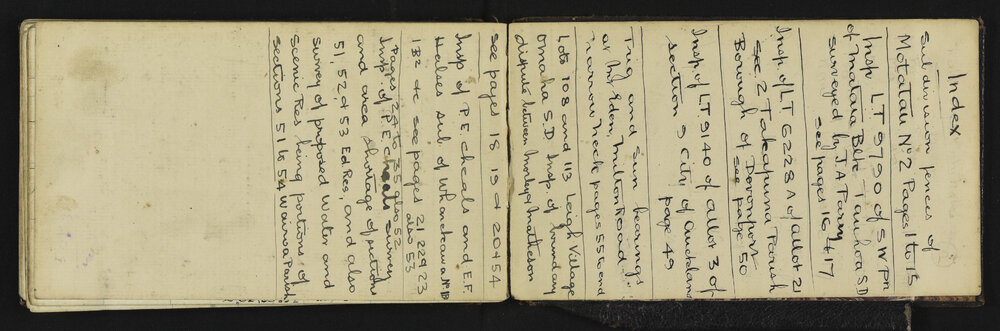 Index
Subdivision fences of
Motatau No 2 Pages 1 to 15
Insp LT 9790 of SW Pn
of Mataia Blk - Tauhoa S.D
surveyed by J.A Tarry
see pages 16 & 17
Insp. of LT 6228A of allot 21
Sec. 2 Takapuna Parish
Borough of Devonport
see page 50
Insp of LT. 9140 of allot 3 of
section 9 city of Auckland
page 49
Trig and Sun bearings
at Mt Eden, Milton Road
Narrow Neck pages 55 to end
Lots 108 and 113 Leigh Village
Omaha S.D Insp of boundary
dispute between Morley & Matheson
see pages 18 19 & 20 & 54
Insp of P.E. Cheals and E.F.
Halses sub. of Wharekawa No
1B2 &c see pages 21 22 & 23
also 53
Pages 24 to 35 also 52
Insp. of P.E Cheals survey
and area shortage of sections
51, 52 & 53 Ed Res, and also
survey of proposed Water and
Scenic Res being portions of
sections 51 to 54 Wairoa Parish